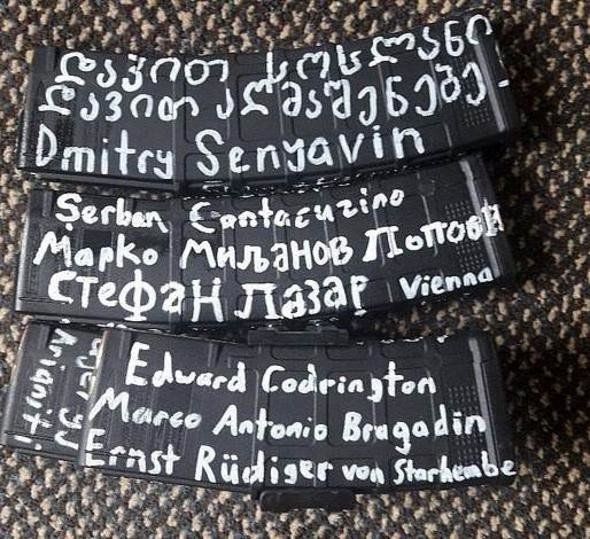 დავით სოსლანი
დავით აღმაშენებე
Dmitry Senyavin
Serban Cantacuzino
Марко Миљанов Попови
Стефан Лазар Vienna
Edward Codrington
Marco Antonio Bragadin
Ernst Rüdiger von Starhembe
Arianiti